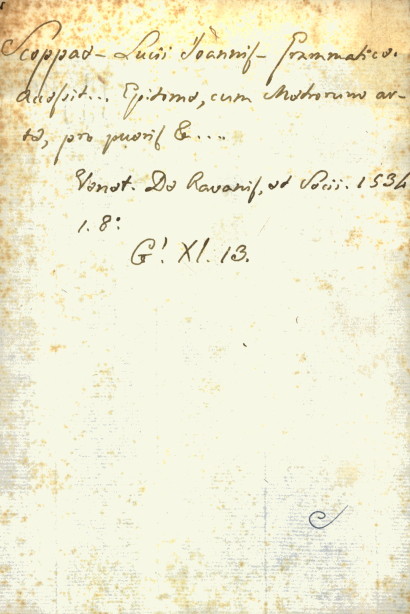 Scoppae - Lucii Ioannis - Grammatice.
Accessit... Epitome, cum Metrorum ar-
te, pro pueris & ....
Venet. De Ravanis, et Socii. 1534
1. 8:
G'. XI. 13.